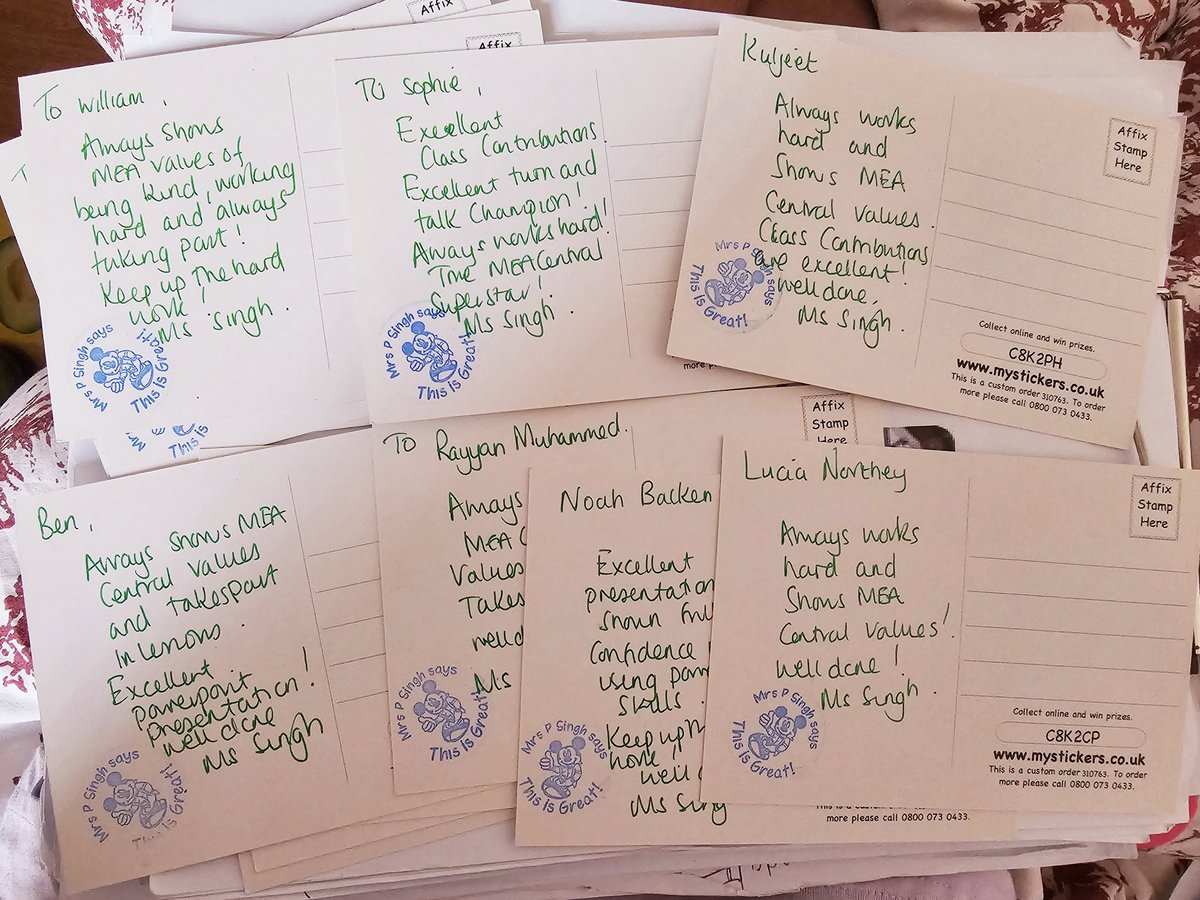 Affix
Affix
To William,
Always shows
MEA values of
being kind, working
hard and always
taking part!
Keep up the hard
work!
Ms Singh.
Mrs P Singh says
This is Great!
This is
To Sophie,
Excellent
Class Contributions
Excellent turn and
talk Champion!
Always works hard!
True MEA Central
Superstar!
Ms Singh.
Mrs P Singh says
This is Great!
more p
Kuljeet
Always works
hard and
Shows MEA
Central values.
Class Contributions
are excellent!
well done,
Ms Singh.
Mrs P Singh says
This is Great!
Affix
Stamp
Here
Collect online and win prizes.
C8K2PH
www.mystickers.co.uk
This is a custom order 310763. To order
more please call 0800 073 0433.
Ben,
Always shows MEA
Central values
and takes part
in lessons.
Excellent
powerpoint
presentation!
well done
Ms Singh
Mrs P Singh says
This is Great!
To Rayyan Muhammed.
Affix
Stamp
Here
Always
MEA C
Values
Takes
well d
Ms
Mrs P Singh says
This is Great!
Noah Backen
Excellent
presentation
shown
Confidence
using
skills.
Keep up th
work!
well d
Ms Sing
Mrs P Singh says
This is Great!
more please call 0800 073 0433.
Lucia Northey
Always works
hard and
Shows MEA
Central values!
well done!
Ms Singh.
Mrs P Singh says
This is Great!
Affix
Stamp
Here
Collect online and win prizes.
C8K2CP
www.mystickers.co.uk
This is a custom order 310763. To order
more please call 0800 073 0433.